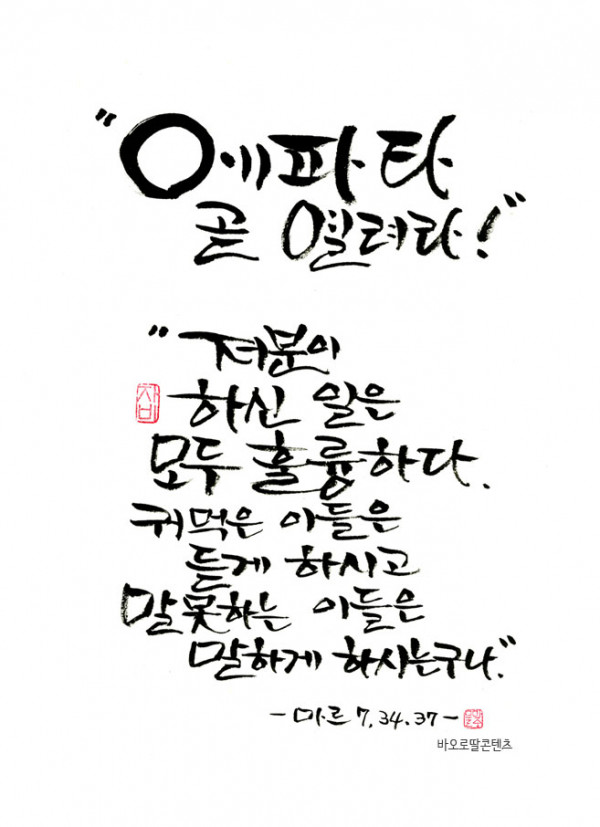 "에파타
곧 열려라!"
"저분이
하신 일은
모두 훌륭하다.
귀먹은 이들은
듣게 하시고
말못하는 이들은
말하게 하시는구나."
-마르 7, 34. 37-
바오로딸콘텐츠